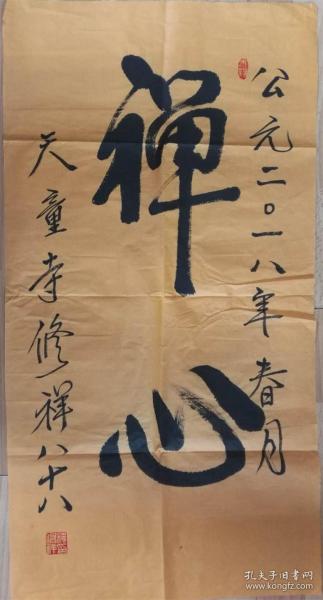 公元二〇一八年春月
禅心
天童寺修祥八十八
孔夫子旧书网